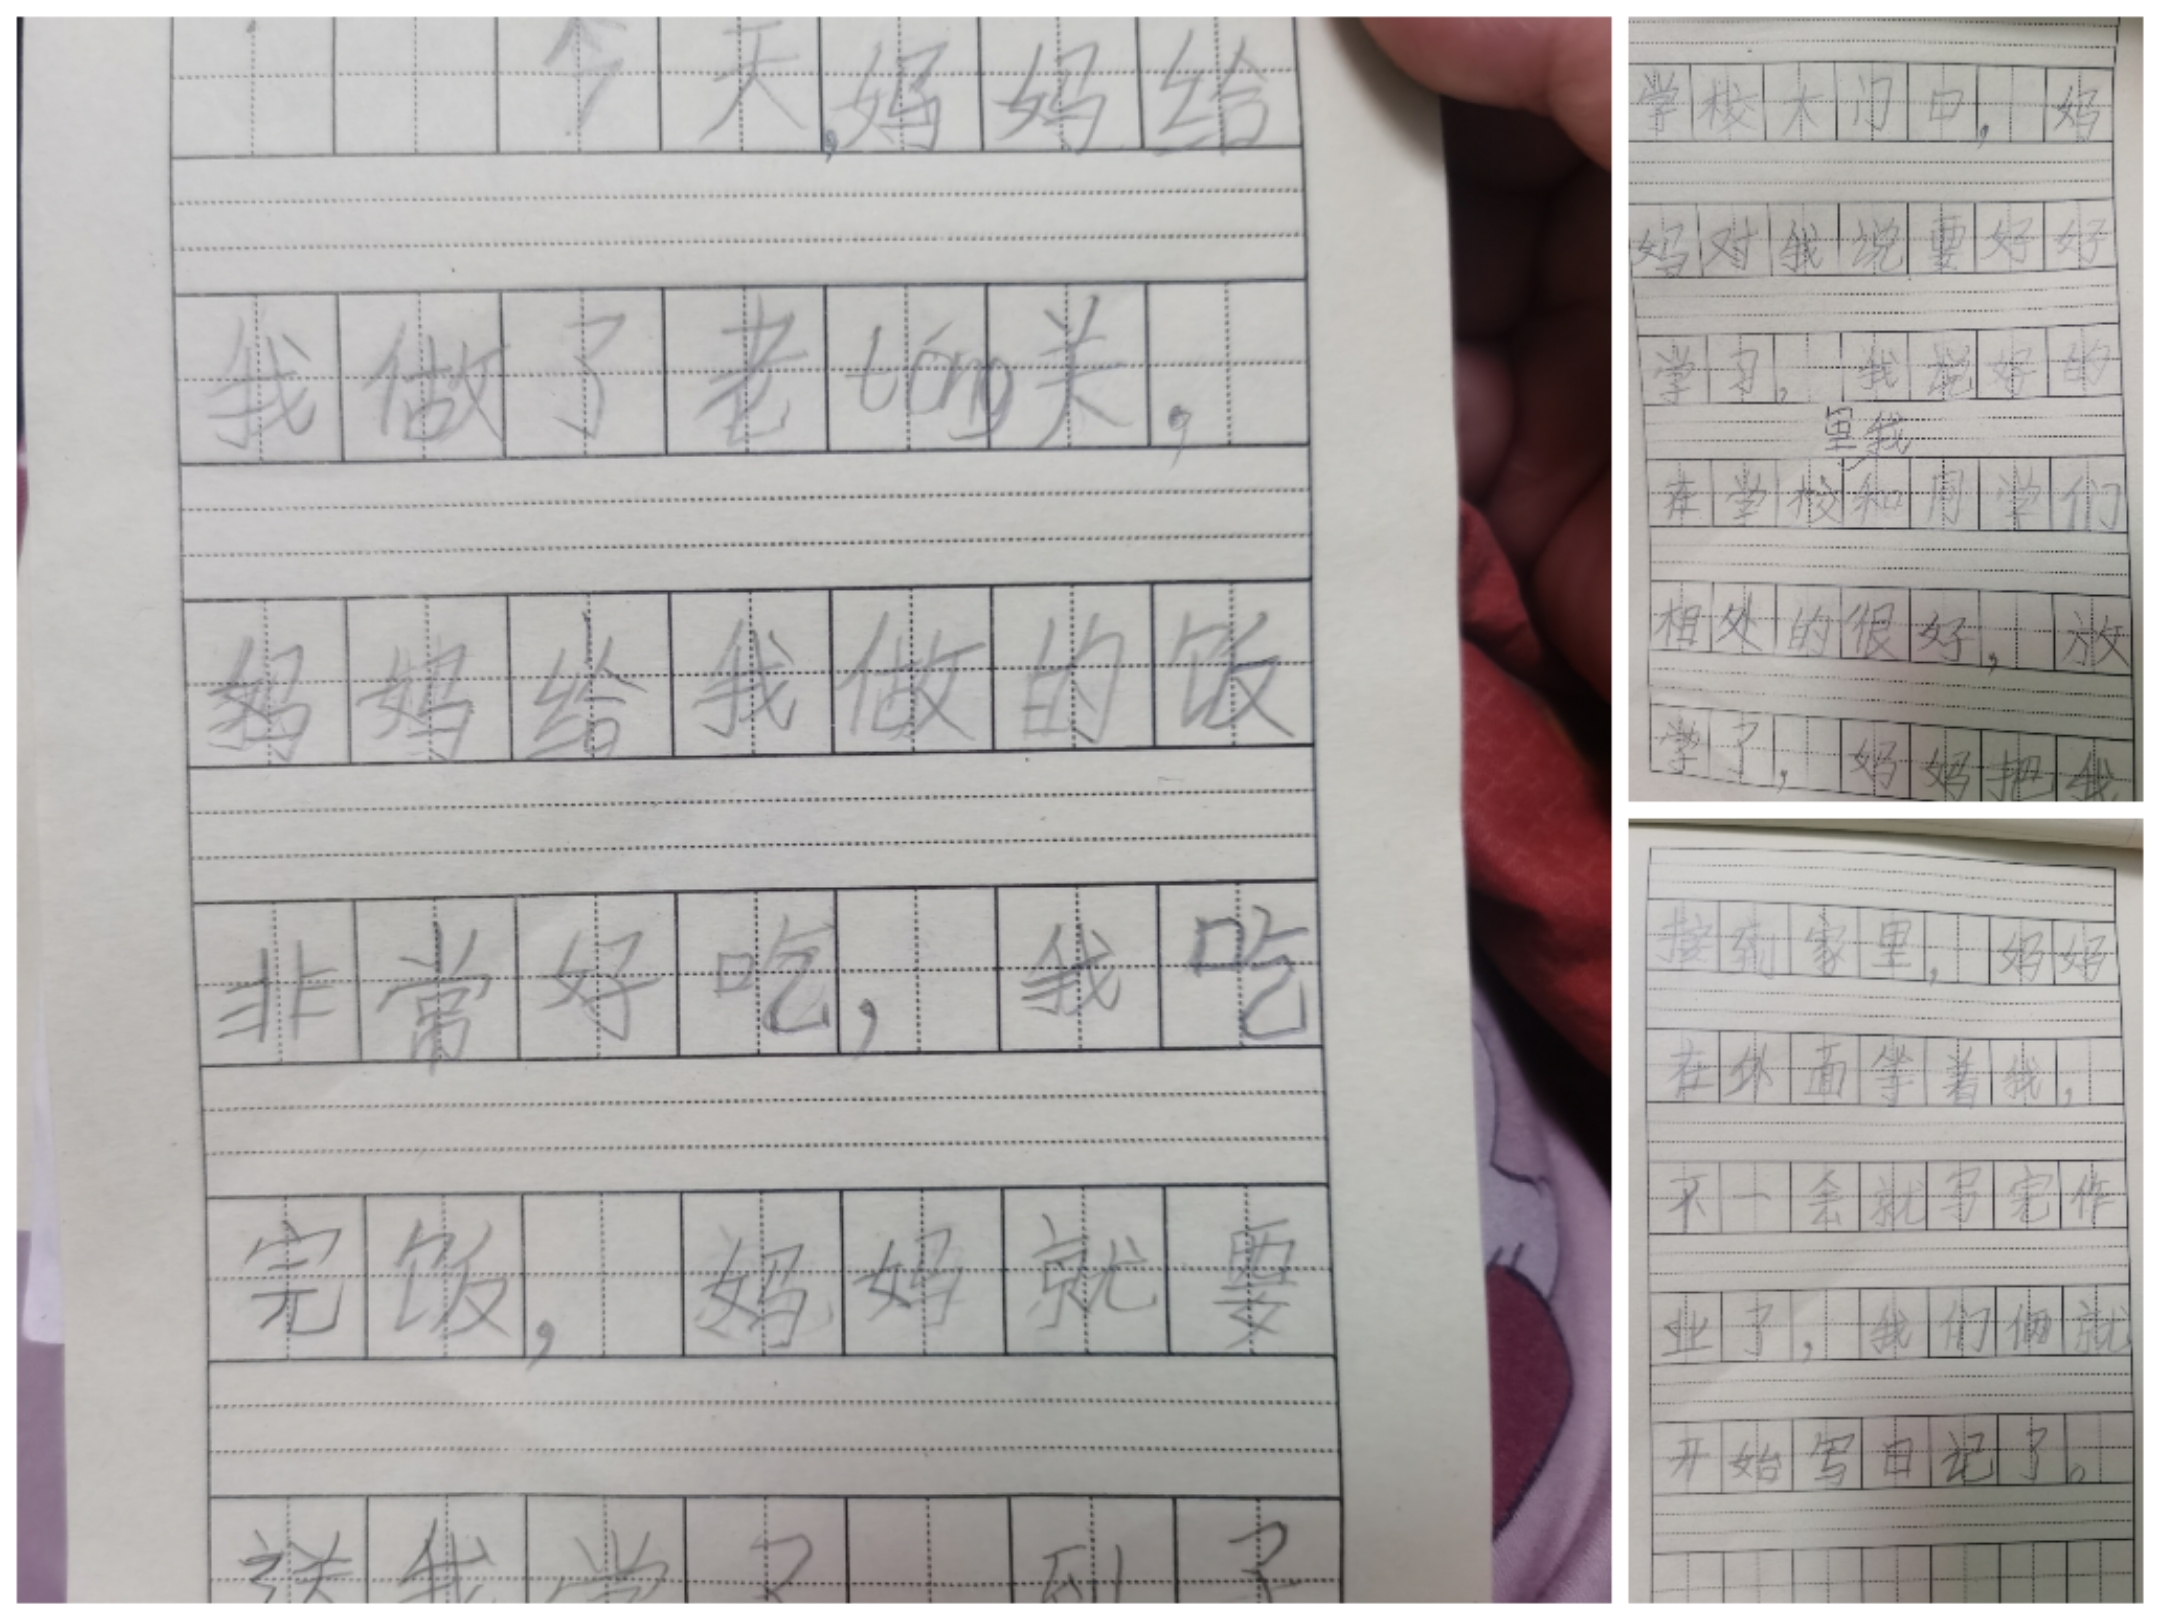 今天,妈妈给
我做了老tóng关,
妈妈给我做的饭
非常好吃,我吃
完饭,妈妈就要
送我学了 到了
学校大门口,妈
妈对我说要好好
学了,我说好的
里我
在学校和同学们
相处的很好,放
学了,妈妈把我
接到家里,妈妈
在外面等着我,
不一会就写完作
业了,我们俩就
开始写日记了。